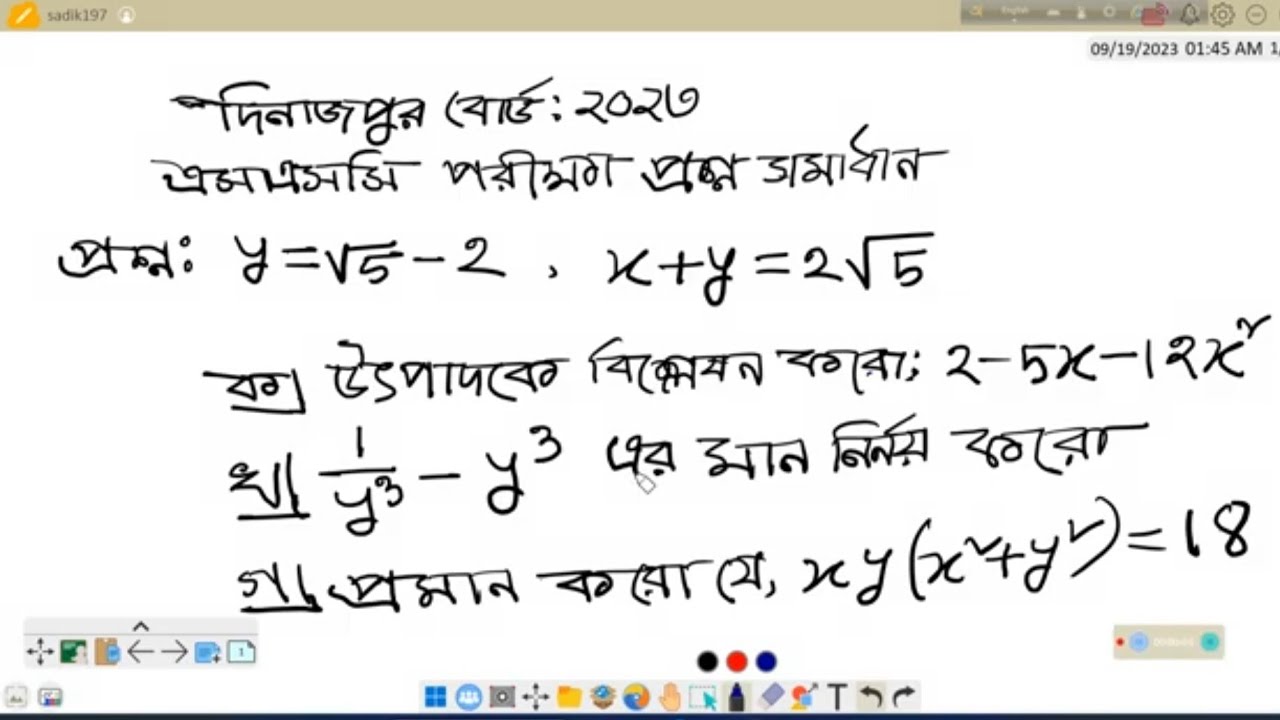 sadik197
English
09/19/2023 01:45 AM 1/
দিনাজপুর বোর্ড: ২০২৩
এসএসসি পরীক্ষা প্রশ্ন সমাধান
প্রশ্ন: y = √5 - 2 , x + y = 2√5
ক) উৎপাদকে বিশ্লেষন করো; 2 - 5x - 12x²
খ) 1/y³ - y³ এর মান নির্নয় করো
গ) প্রমান করো যে, xy(x² + y²) = 18
1
T